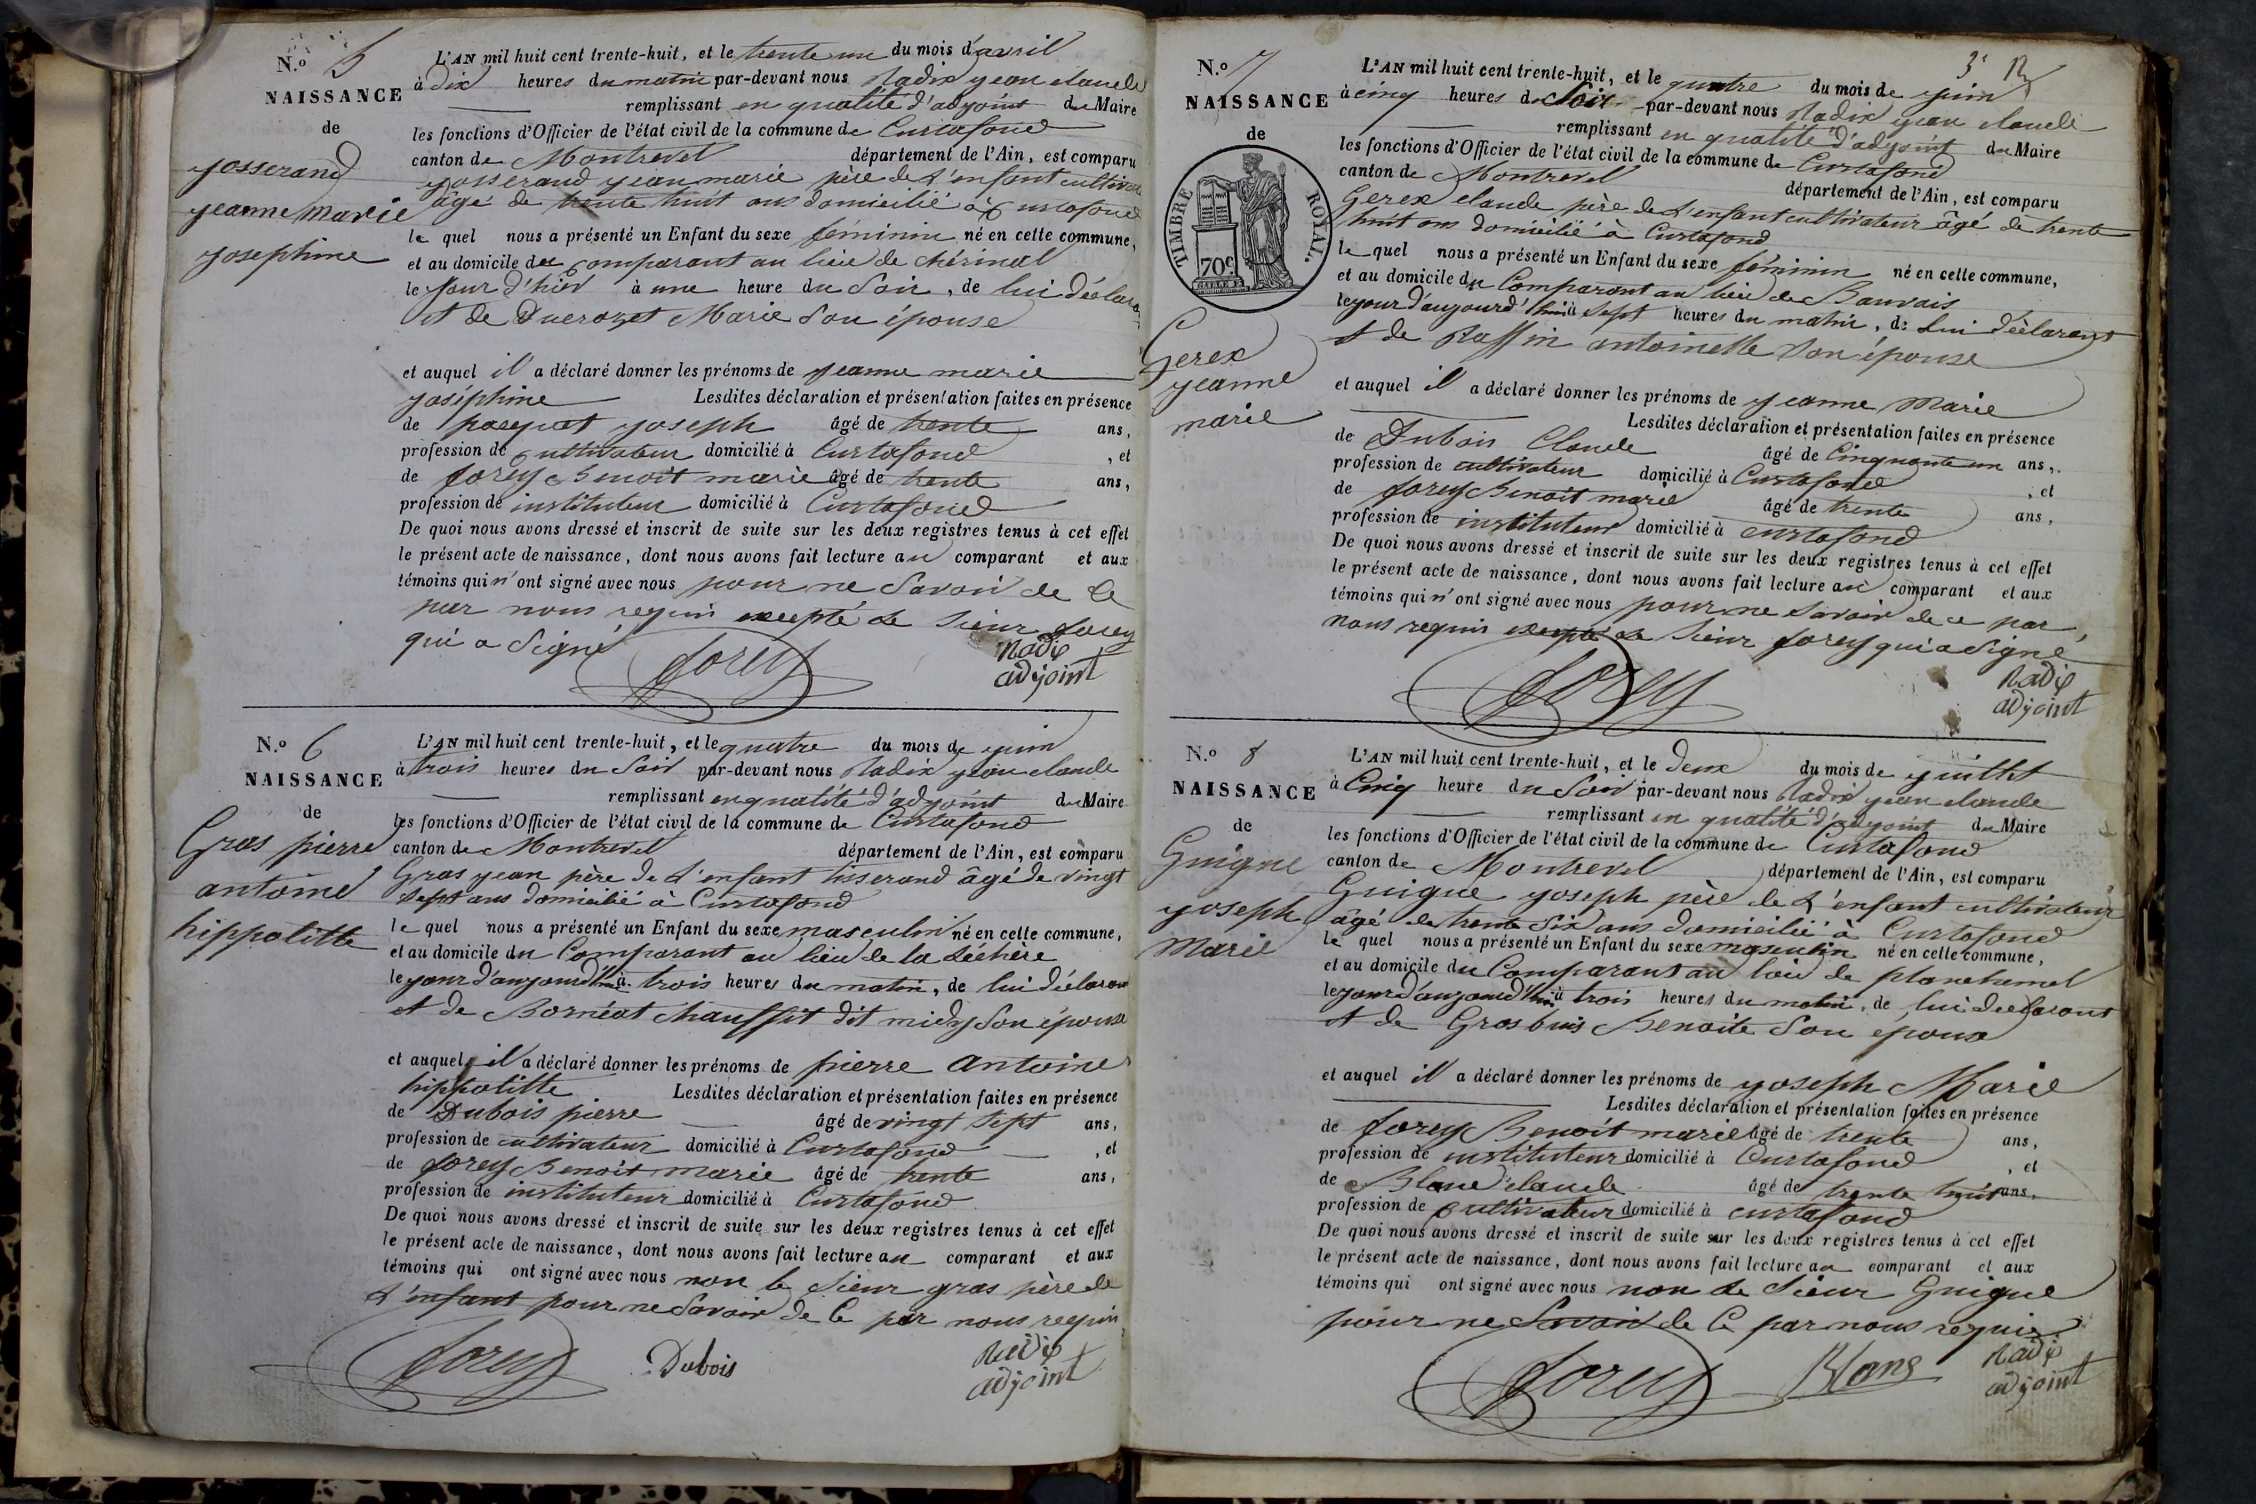 N.º 5
NAISSANCE
de
Josserand
Jeanne Marie
Josephine
L'AN mil huit cent trente-huit, et le trente un du mois d'avril
à Dix heures du matin par-devant nous Nadix Jean claude
remplissant en qualité d'adjoint du Maire
les fonctions d'Officier de l'état civil de la commune de Curtafond
canton de Montrevel département de l'Ain, est comparu
Josserand Jean marie père de L'enfant cultivateur
âgé de trente huit ans domicilié à Curtafond
le quel nous a présenté un Enfant du sexe féminin né en cette commune,
et au domicile du comparant au lieu de chérinal
le Jour d'hier à une heure du Soir, de lui déclarant
et de Duerozet Marie Son épouse
et auquel il a déclaré donner les prénoms de Jeanne marie
Joséphine Lesdites déclaration et présentation faites en présence
de pacquet Joseph âgé de trente ans,
profession de cultivateur domicilié à Curtafond, et
de forey Benoit marie âgé de trente ans,
profession de instituteur domicilié à Curtafond
De quoi nous avons dressé et inscrit de suite sur les deux registres tenus à cet effet
le présent acte de naissance, dont nous avons fait lecture au comparant et aux
témoins qui n'ont signé avec nous pour ne Savoir de Ce
par nous requis excepté le Sieur forey
qui a Signé
forey
Nadix
adjoint
N.º 6
NAISSANCE
de
Gras pierre
antoine
hippolitte
L'AN mil huit cent trente-huit, et le quatre du mois de juin
à trois heures du Soir par-devant nous Nadix Jean claude
remplissant en qualité d'adjoint du Maire
les fonctions d'Officier de l'état civil de la commune de Curtafond
canton de Montrevel département de l'Ain, est comparu
Gras Jean père de L'enfant tisserand âgé de vingt
Sept ans domicilié à Curtafond
le quel nous a présenté un Enfant du sexe masculin né en cette commune,
et au domicile du Comparant au lieu de la
le jour d'aujourd'hui à trois heures du matin, de lui déclarant
et de Bornéat Chauffit dit midy Son épouse
et auquel il a déclaré donner les prénoms de pierre Antoine
hippolitte Lesdites déclaration et présentation faites en présence
de Dubois pierre âgé de vingt Sept ans,
profession de cultivateur domicilié à Curtafond, et
de forey Benoit marie âgé de trente ans,
profession de instituteur domicilié à Curtafond
De quoi nous avons dressé et inscrit de suite sur les deux registres tenus à cet effet
le présent acte de naissance, dont nous avons fait lecture au comparant et aux
témoins qui ont signé avec nous non le Sieur gras père de
L'enfant pour ne Savoir de Ce par nous requis
forey
Dubois
Nadix
adjoint
3e R
N.º 7
NAISSANCE
de
TIMBRE ROYAL.
70c
Gerex
Jeanne
marie
L'AN mil huit cent trente-huit, et le quatre du mois de juin
à cinq heures du Soir par-devant nous Nadix Jean claude
remplissant en qualité d'adjoint du Maire
les fonctions d'Officier de l'état civil de la commune de Curtafond
canton de Montrevel département de l'Ain, est comparu
Gerex claude père de L'enfant cultivateur âgé de trente
huit ans domicilié à Curtafond
le quel nous a présenté un Enfant du sexe féminin né en cette commune,
et au domicile du Comparant au lieu de Bauvais
le jour d'aujourd'hui à Sept heures du matin, de Lui déclarant
et de Raffin antoinette Son épouse
et auquel il a déclaré donner les prénoms de Jeanne Marie
Lesdites déclaration et présentation faites en présence
de Dubois Claude âgé de Cinquante un ans,
profession de cultivateur domicilié à Curtafond, et
de forey Benoit marie âgé de trente ans,
profession de instituteur domicilié à curtafond
De quoi nous avons dressé et inscrit de suite sur les deux registres tenus à cet effet
le présent acte de naissance, dont nous avons fait lecture au comparant et aux
témoins qui n'ont signé avec nous pour ne Savoir de ce par
nous requis excepté le Sieur forey qui a Signé
forey
Nadix
adjoint
N.º 8
NAISSANCE
de
Guigue
Joseph
Marie
L'AN mil huit cent trente-huit, et le Deux du mois de juillet
à Cinq heure du Soir par-devant nous Nadix Jean claude
remplissant en qualité d'adjoint du Maire
les fonctions d'Officier de l'état civil de la commune de Curtafond
canton de Montrevel département de l'Ain, est comparu
Guigue Joseph père de L'enfant cultivateur
âgé de trente Six ans domicilié à Curtafond
le quel nous a présenté un Enfant du sexe masculin né en cette commune,
et au domicile du Comparant au lieu de planchemel
le jour d'aujourd'hui à trois heures du matin, de lui declarant
et de Grosbuis Benoite Son epouse
et auquel il a déclaré donner les prénoms de Joseph Marie
Lesdites déclaration et présentation faites en présence
de forey Benoit marie âgé de trente ans,
profession de instituteur domicilié à Curtafond, et
de Blanc claude âgé de trente huit ans,
profession de cultivateur domicilié à curtafond
De quoi nous avons dressé et inscrit de suite sur les deux registres tenus à cet effet
le présent acte de naissance, dont nous avons fait lecture au comparant et aux
témoins qui ont signé avec nous non le Sieur Guigue
pour ne Savoir de Ce par nous requis
forey
Blanc
Nadix
adjoint